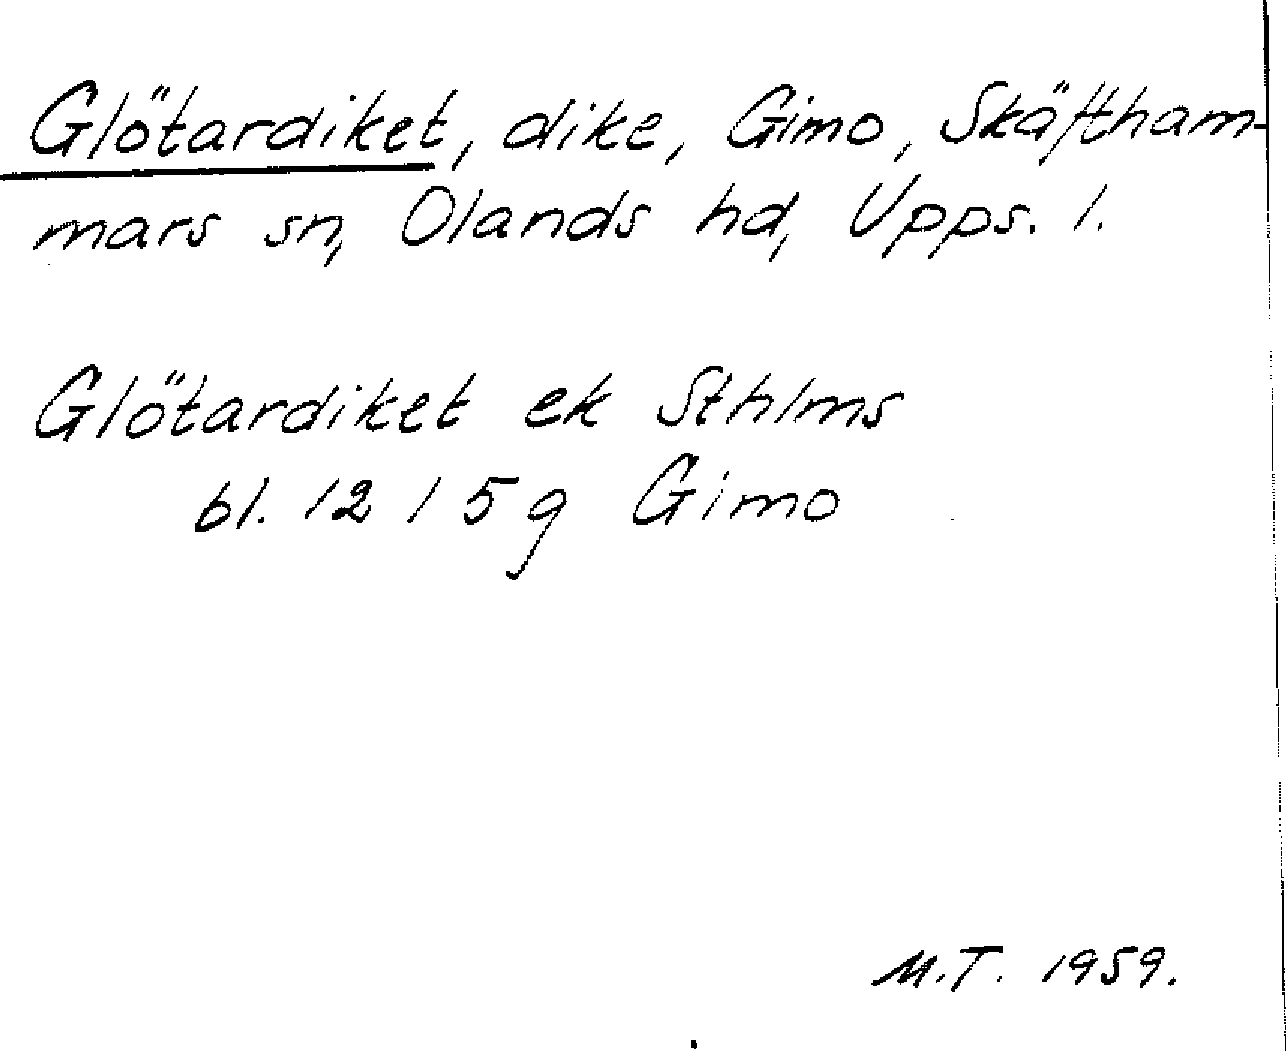 Glötardiket, dike, Gimo, Skäftham-
mars sn, Olands hd, Upps. l.
Glötardiket ek Sthlms
bl. 12 I 5 g Gimo
M.T. 1959.